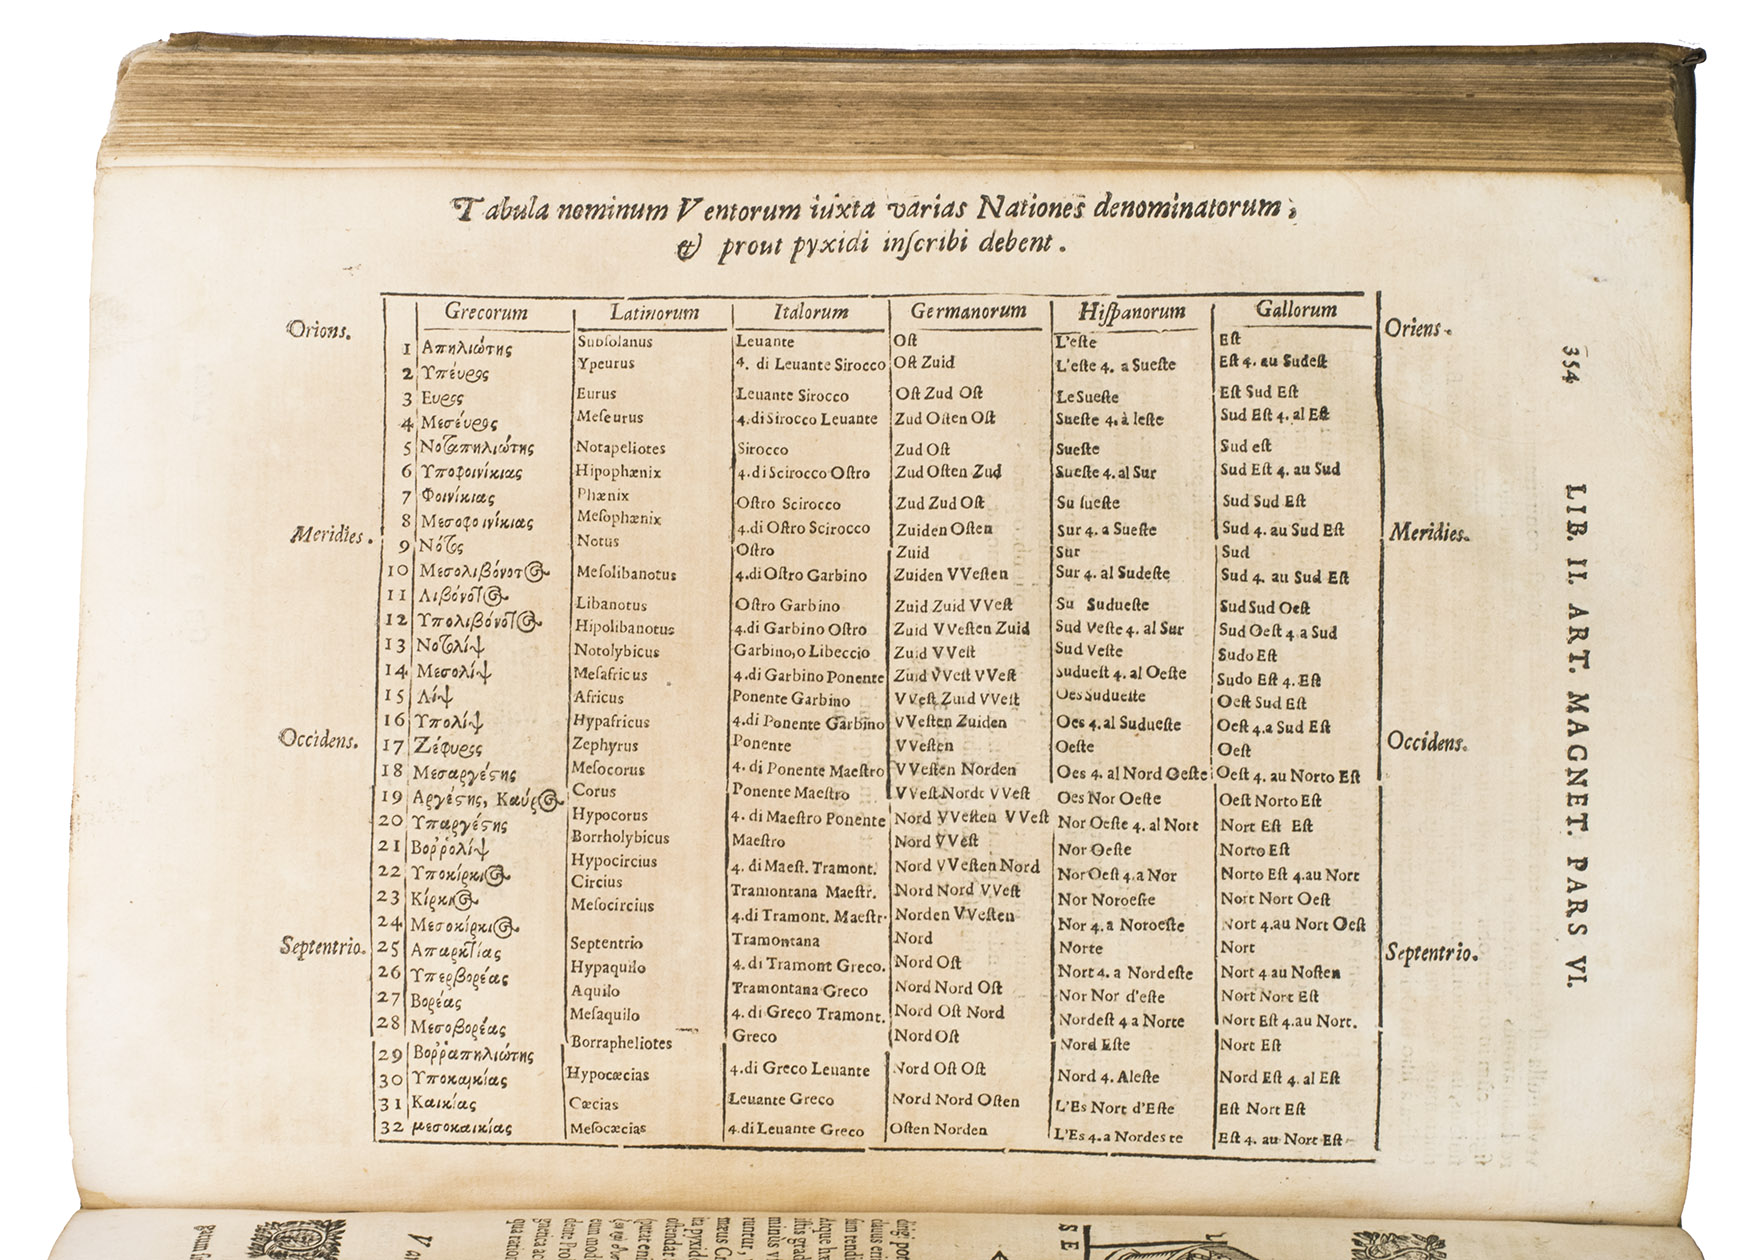 Tabula nominum Ventorum iuxta varias Nationes denominatorum,
& prout pyxidi inſcribi debent.
Grecorum Latinorum Italorum Germanorum Hiſpanorum Gallorum
Orions. Oriens.
1 Απηλιώτης Subſolanus Leuante Oſt L'eſte Eſt
2 Υπέυρος Ypeurus 4. di Leuante Sirocco Oſt Zuid L'eſte 4. a Sueſte Eſt 4. au Sudeſt
3 Ευρος Eurus Leuante Sirocco Oſt Zud Oſt Le Sueſte Eſt Sud Eſt
4 Μεσέυρος Meſeurus 4. di Sirocco Leuante Zud Oſten Oſt Sueſte 4. à leſte Sud Eſt 4. al Eſt
5 Νοταπηλιώτης Notapeliotes Sirocco Zud Oſt Sueſte Sud eſt
6 Υποφοινίκιας Hipophænix 4. di Scirocco Oſtro Zud Oſten Zud Sueſte 4. al Sur Sud Eſt 4. au Sud
7 Φοινίκιας Phænix Oſtro Scirocco Zud Zud Oſt Su ſueſte Sud Sud Eſt
8 Μεσοφοινίκιας Meſophænix 4. di Oſtro Scirocco Zuiden Oſten Sur 4. a Sueſte Sud 4. au Sud Eſt
Meridies. 9 Νότος Notus Oſtro Zuid Sur Sud Meridies.
10 Μεσολιβόνοτος Meſolibanotus 4. di Oſtro Garbino Zuiden VVeſten Sur 4. al Sudeſte Sud 4. au Sud Eſt
11 Λιβόνοτος Libanotus Oſtro Garbino Zuid Zuid VVeſt Su Sudueſte Sud Sud Oeſt
12 Υπολιβόνοτος Hipolibanotus 4. di Garbino Oſtro Zuid VVeſten Zuid Sud Veſte 4. al Sur Sud Oeſt 4. a Sud
13 Νοτολίψ Notolybicus Garbino, o Libeccio Zuid VVeſt Sud Veſte Sudo Eſt
14 Μεσολίψ Meſafricus 4. di Garbino Ponente Zuid VVeſt VVeſt Sudueſt 4. al Oeſte Sudo Eſt 4. Eſt
15 Λίψ Africus Ponente Garbino VVeſt Zuid VVeſt Oes Sudueſte Oeſt Sud Eſt
16 Υπολίψ Hypafricus 4. di Ponente Garbino VVeſten Zuiden Oes 4. al Sudueſte Oeſt 4. a Sud Eſt
Occidens. 17 Ζέφυρος Zephyrus Ponente VVeſten Oeſte Oeſt Occidens.
18 Μεσαργέςης Meſocorus 4. di Ponente Maeſtro VVeſten Norden Oes 4. al Nord Oeſte Oeſt 4. au Norto Eſt
19 Αργέςης, Καύρος Corus Ponente Maeſtro VVeſt Norde VVeſt Oes Nor Oeſte Oeſt Norto Eſt
20 Υπαργέςης Hypocorus 4. di Maeſtro Ponente Nord VVeſten VVeſt Nor Oeſte 4. al Nort Nort Eſt Eſt
21 Βοῤῥολίψ Borrholybicus Maeſtro Nord VVeſt Nor Oeſte Norto Eſt
22 Υποκίρκιος Hypocircius 4. di Maeſt. Tramont. Nord VVeſten Nord Nor Oeſt 4. a Nor Norto Eſt 4. au Nort
23 Κίρκιος Circius Tramontana Maeſtr. Nord Nord VVeſt Nor Noroeſte Nort Nort Oeſt
24 Μεσοκίρκιος Meſocircius 4. di Tramont. Maeſtr. Norden VVeſten Nor 4. a Noroeſte Nort 4. au Nort Oeſt
Septentrio. 25 Απαρκτίας Septentrio Tramontana Nord Norte Nort Septentrio.
26 Υπερβορέας Hypaquilo 4. di Tramont Greco. Nord Oſt Nort 4. a Nordeſte Nort 4 au Noſten
27 Βορέας Aquilo Tramontana Greco Nord Nord Oſt Nor Nor d'eſte Nort Nort Eſt
28 Μεσοβορέας Meſaquilo 4. di Greco Tramont. Nord Oſt Nord Nordeſt 4 a Norte Nort Eſt 4. au Nort.
29 Βοῤῥαπηλιώτης Borrapheliotes Greco Nord Oſt Nord Eſte Nort Eſt
30 Υποκαικίας Hypocæcias 4. di Greco Leuante Nord Oſt Oſt Nord 4. Aleſte Nord Eſt 4. al Eſt
31 Καικίας Cæcias Leuante Greco Nord Nord Oſten L'Es Nort d'Eſte Eſt Nort Eſt
32 μεσοκαικίας Meſocæcias 4. di Leuante Greco Oſten Norden L'Es 4. a Nordes te Eſt 4. au Nort Eſt
354 LIB. II. ART. MAGNET. PARS VI.